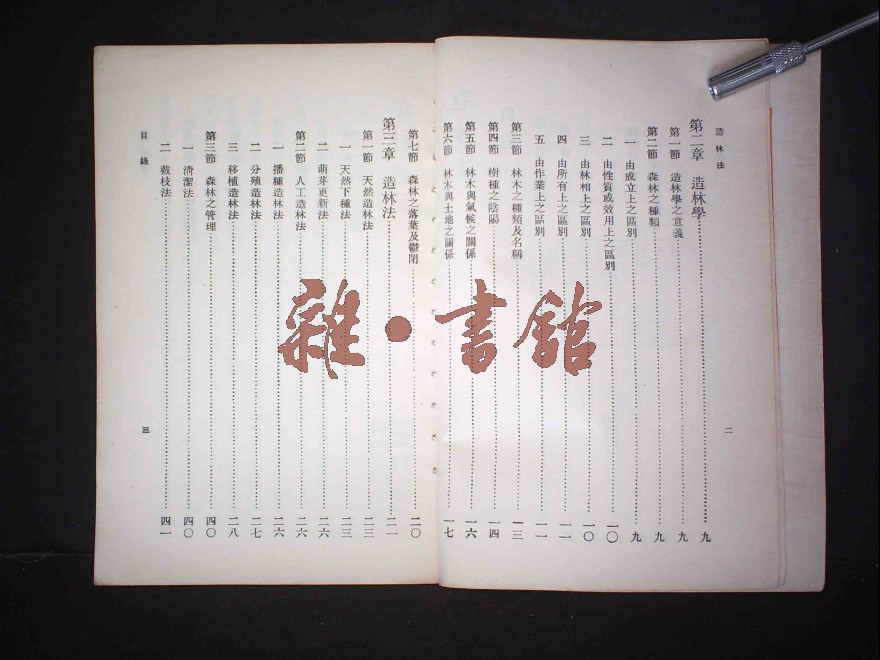 造林法
第二章　造林學……九
第一節　造林學之意義……九
第二節　森林之種類……九
一　由成立上之區別……九
二　由性質或效用上之區別……一〇
三　由林相上之區別……一〇
四　由所有上之區別……一一
五　由作業上之區別……一一
第三節　林木之種類及名稱……一三
第四節　樹種之陰陽……一四
第五節　林木與氣候之關係……一六
第六節　林木與土地之關係……一七
二
第七節　森林之落葉及鬱閉……二〇
第三章　造林法……二一
第一節　天然造林法……二三
一　天然下種法……二三
二　萌芽更新法……二六
第二節　人工造林法……二六
一　播種造林法……二六
二　分殖造林法……二七
三　移植造林法……二八
第三節　森林之管理……四〇
一　清潔法……四〇
二　截枝法……四一
目錄
三
雜·書館